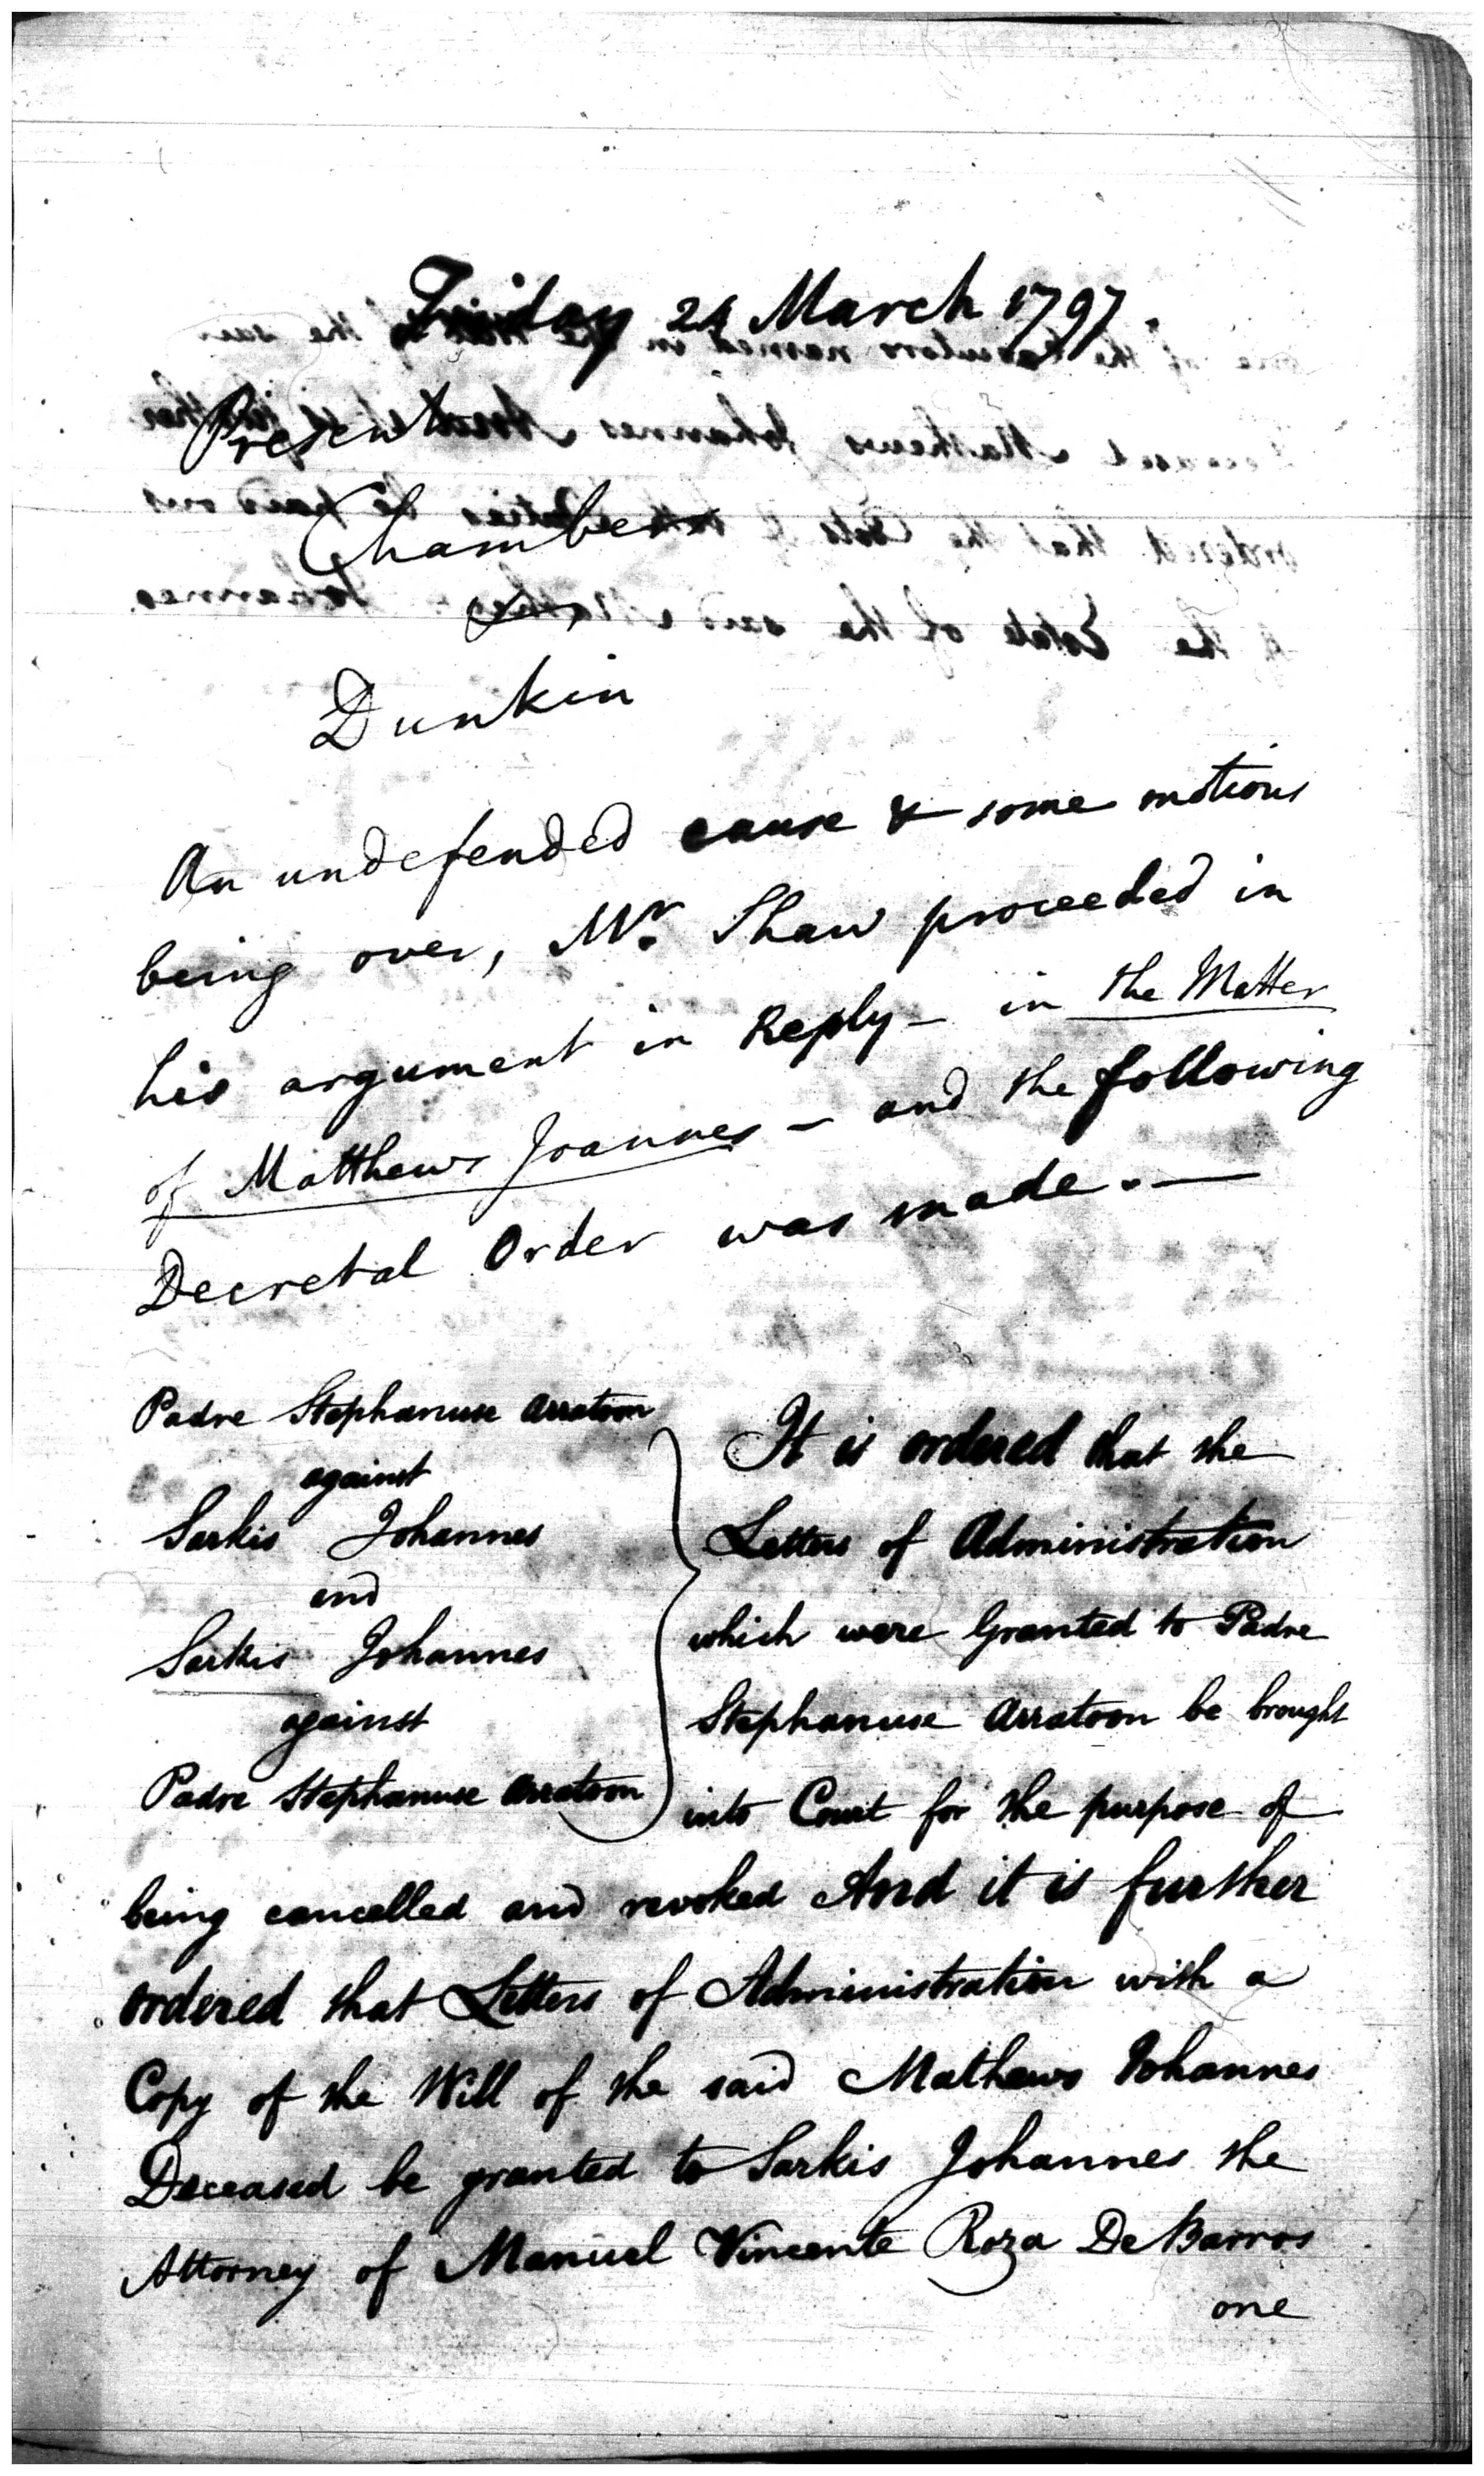 Friday 24 March 1797.
Present
Chambers
&
Dunkin
An undefended cause & some motions
being over, Mr. Shaw proceeded in
his argument in Reply – in the Matter
of Matthews Joannes – and the following
Decretal Order was made. —
Padre Stephanuse Arratoon
against
Sarkis Johannes
and
Sarkis Johannes
against
Padre Stephanuse Arratoon
It is ordered that the
Letters of Administration
which were Granted to Padre
Stephanuse Arratoon be brought
into Court for the purpose of
being cancelled and revoked And it is further
ordered that Letters of Administration with a
Copy of the Will of the said Mathews Johannes
Deceased be granted to Sarkis Johannes the
Attorney of Manuel Vincente Roza De Barros
one